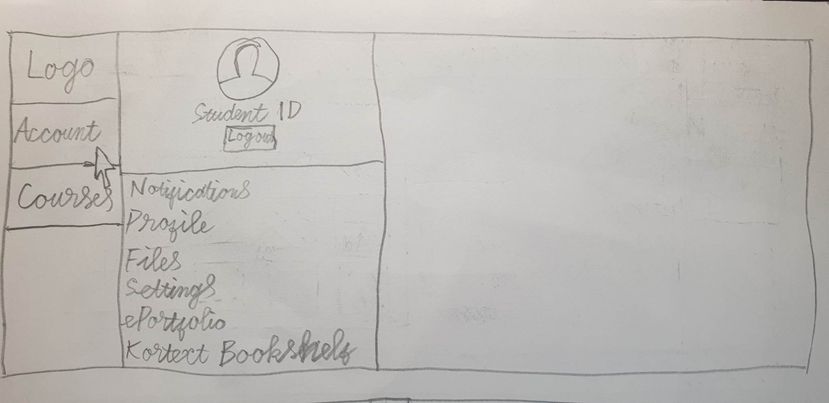 Logo
Account
Courses
Student ID
Logout
Notifications
Profile
Files
Settings
ePortfolio
Kortext Bookshelf